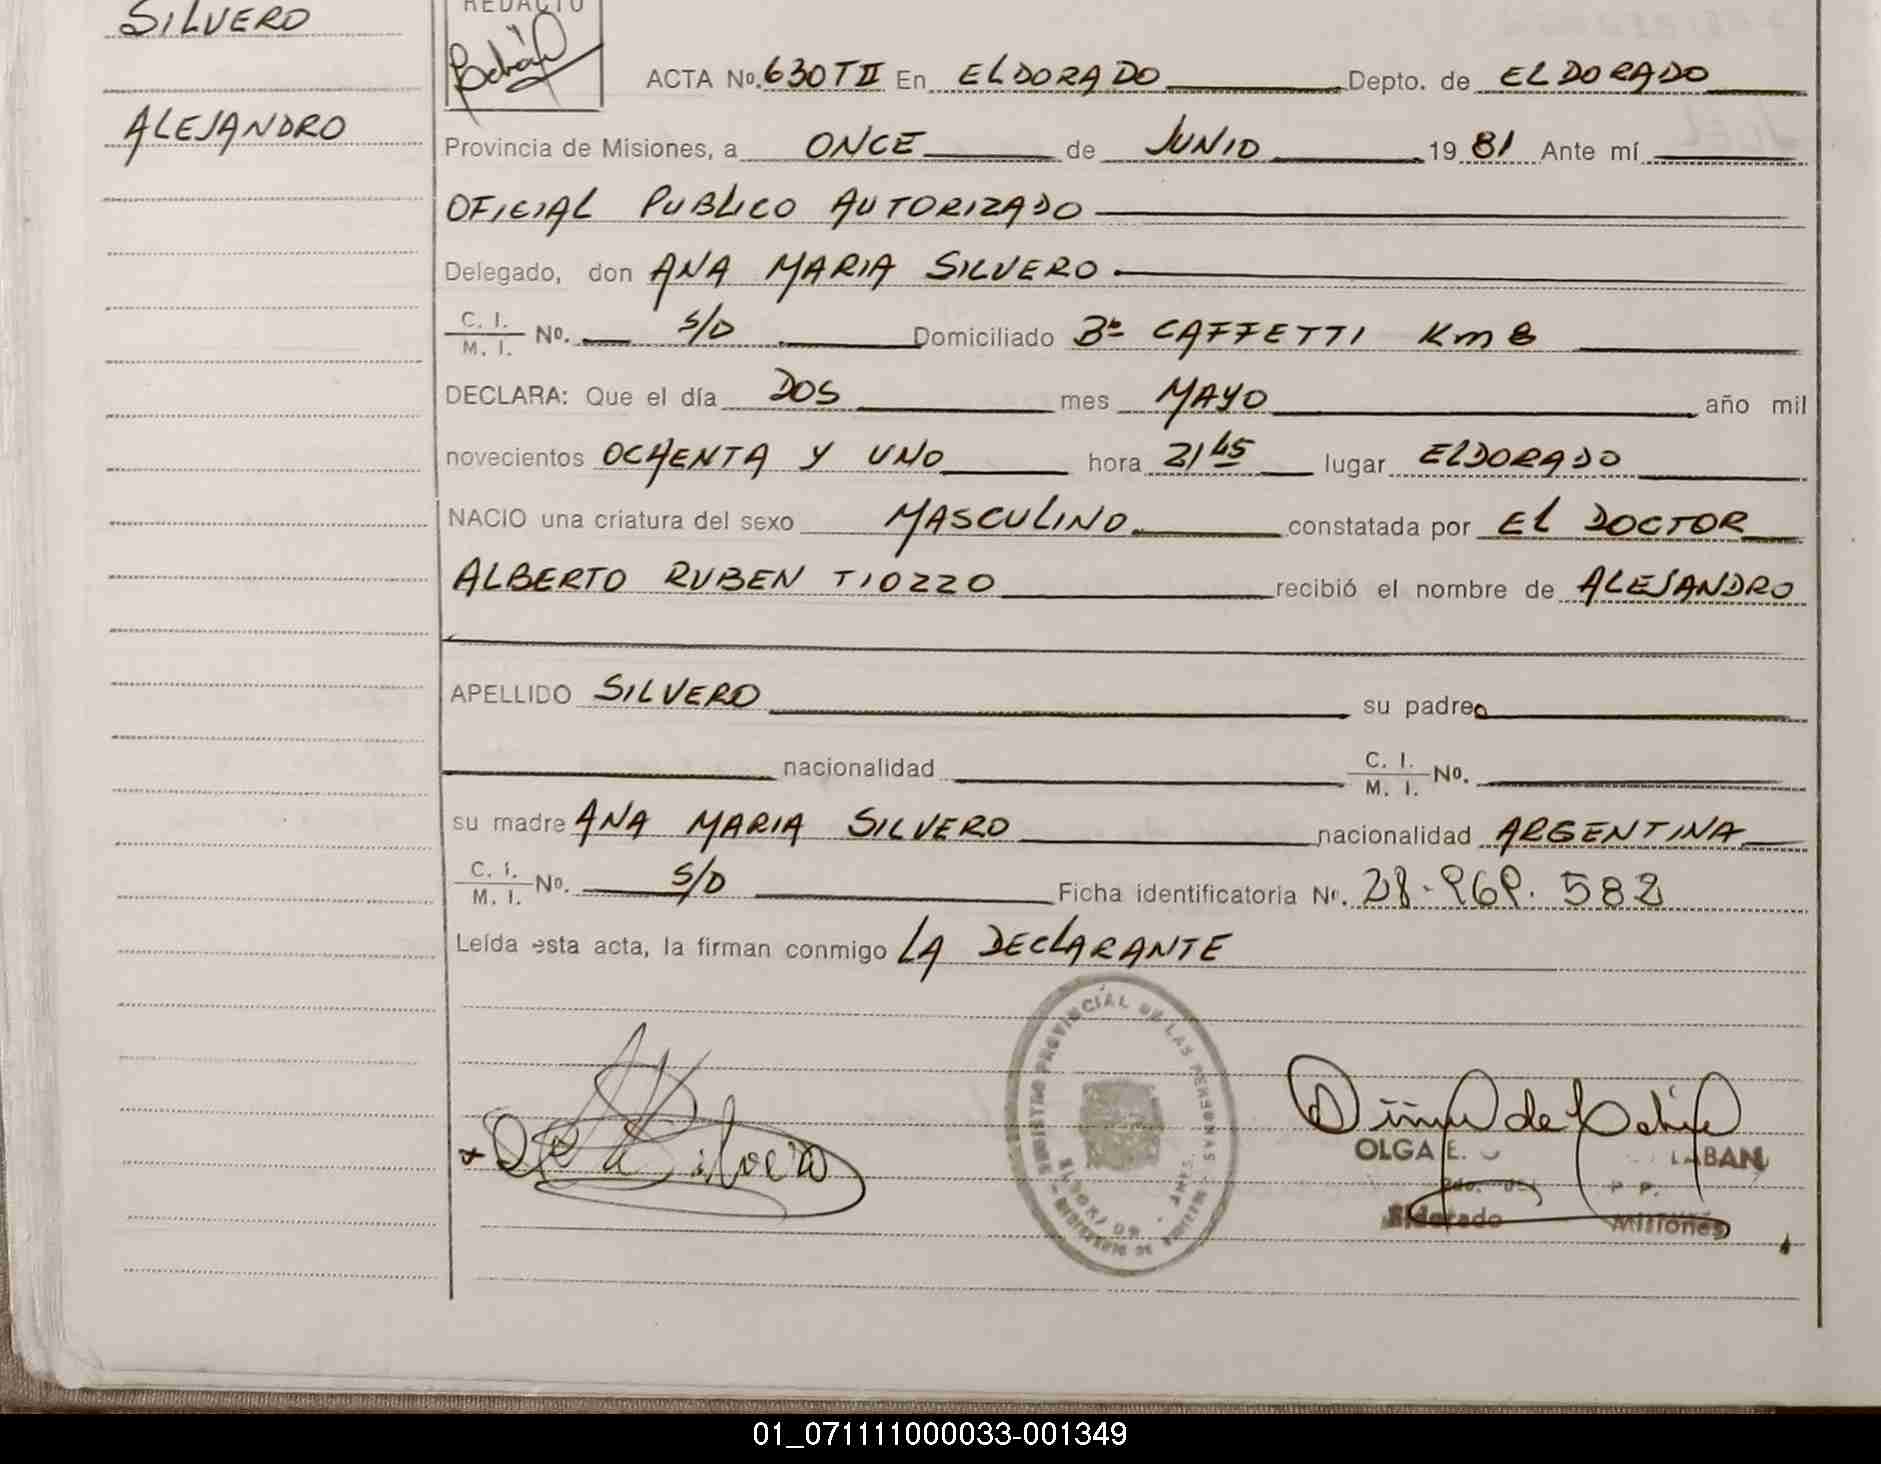 SILVERO
ALEJANDRO
REDACTO
ACTA No. 630 T II En ELDORADO Depto. de ELDORADO
Provincia de Misiones, a ONCE de JUNIO 1981 Ante mí
OFICIAL PUBLICO AUTORIZADO
Delegado, don ANA MARIA SILVERO
C. I. / M. I. No. S/D Domiciliado Bº CAFFETTI Km 8
DECLARA: Que el día DOS mes MAYO año mil
novecientos OCHENTA Y UNO hora 21 45 lugar ELDORADO
NACIO una criatura del sexo MASCULINO constatada por EL DOCTOR
ALBERTO RUBEN TIOZZO recibió el nombre de ALEJANDRO
APELLIDO SILVERO su padre
nacionalidad C. I. / M. I. No.
su madre ANA MARIA SILVERO nacionalidad ARGENTINA
C. I. / M. I. No. S/D Ficha identificatoria Nº. 28.969.582
Leída esta acta, la firman conmigo LA DECLARANTE
REGISTRO PROVINCIAL DE LAS PERSONAS
MINISTERIO DE
OLGA E.
Eldorado Misiones
01_071111000033-001349